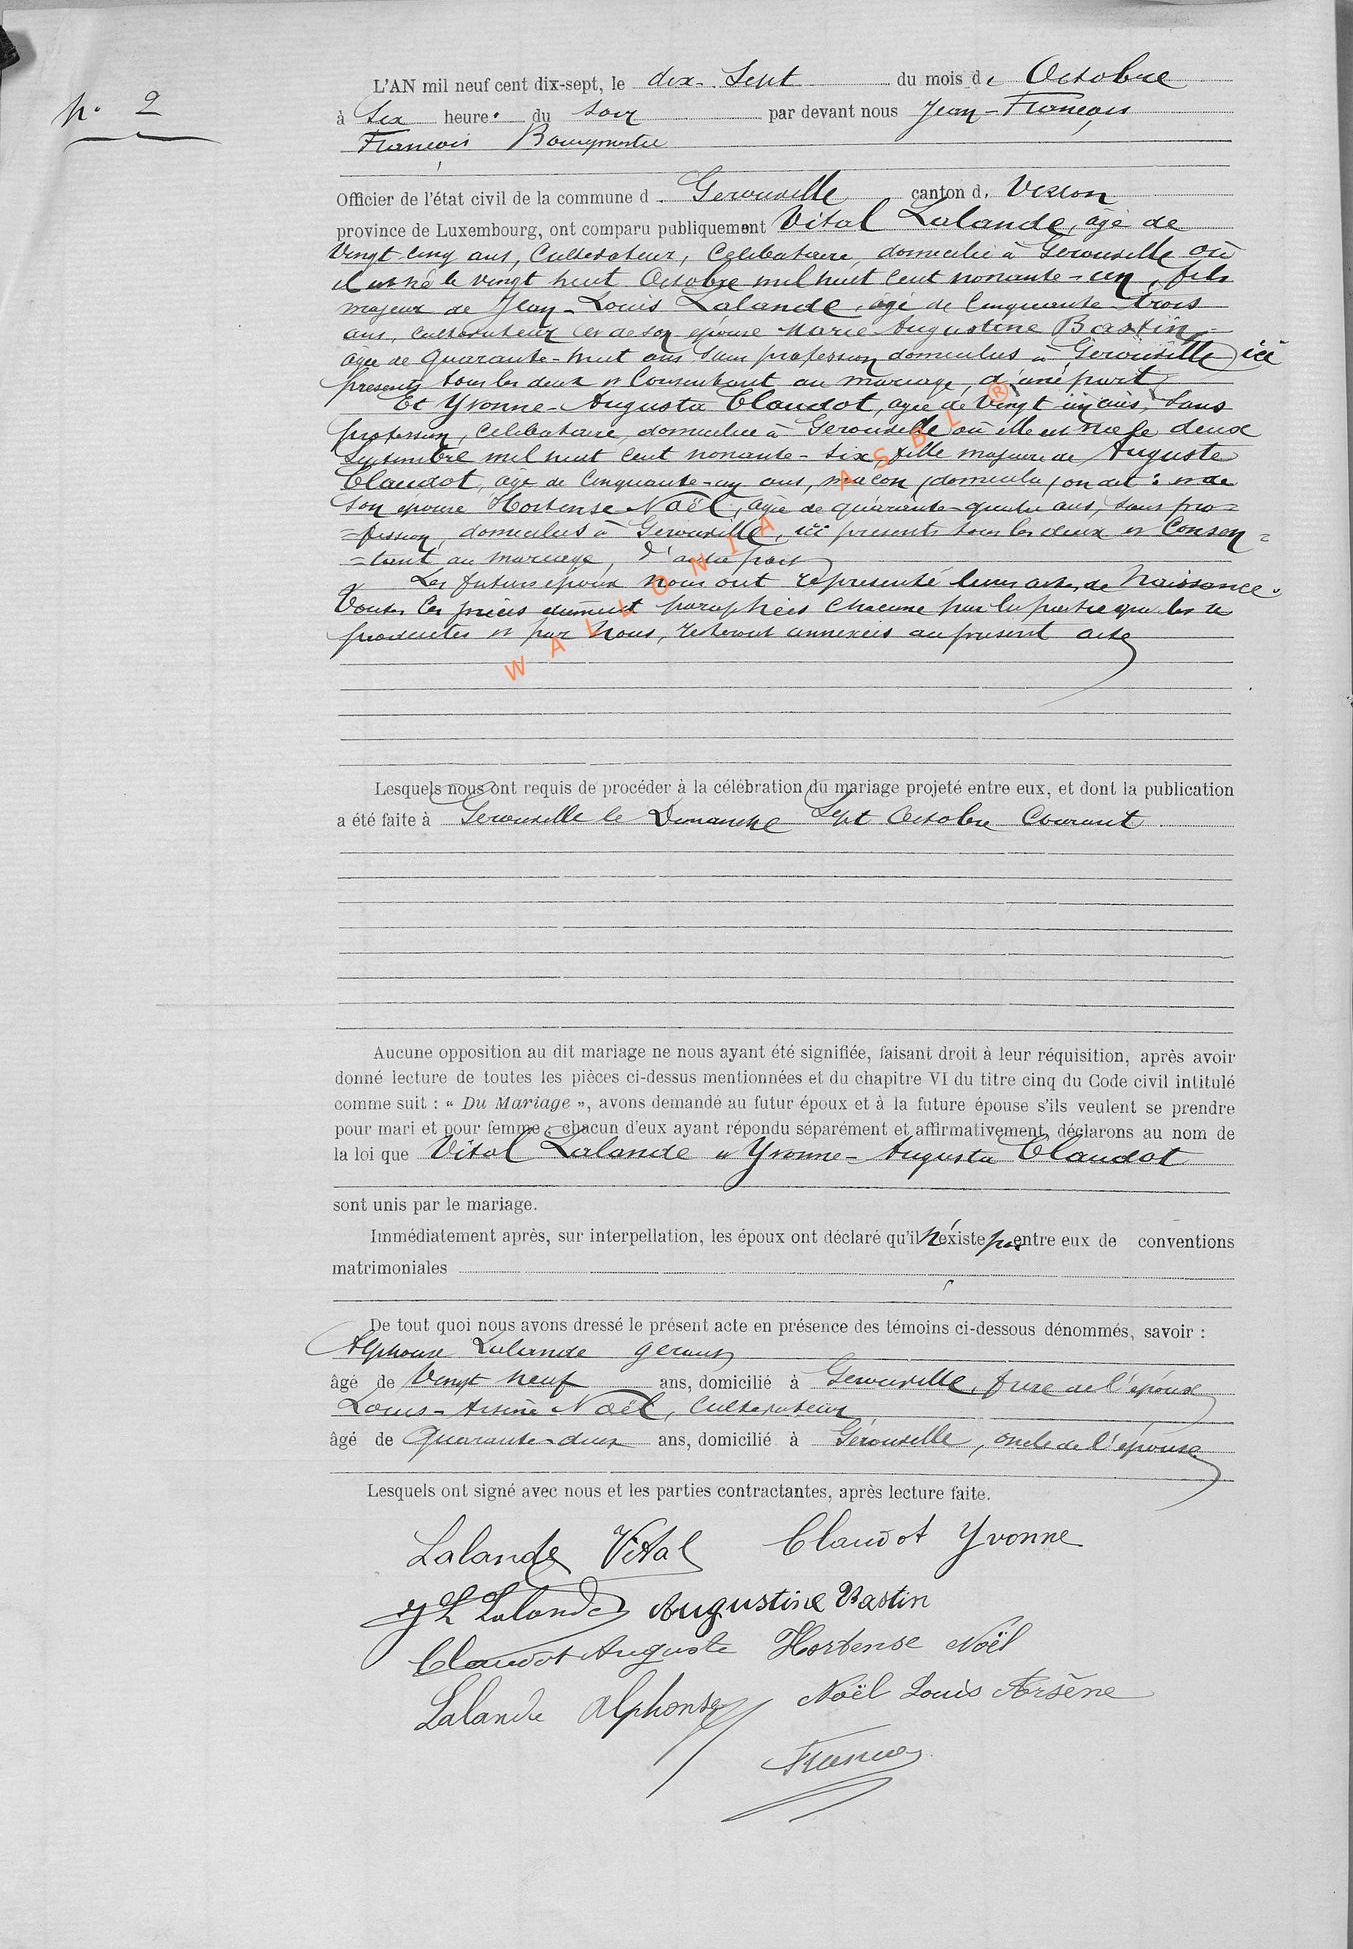 N° 2
L'AN mil neuf cent dix-sept, le dix-sept du mois d. Octobre
à Six heure. du soir par devant nous Jean-François
François Bourgmestre
Officier de l'état civil de la commune d. Gérouville canton d. Virton
province de Luxembourg, ont comparu publiquement Vital Lalande, âgé de
Vingt cinq ans, Cultivateur, Célibataire, domicilié à Gerouville où
il est né le vingt huit Octobre mil huit cent nonante-un, fils
majeur de Jean-Louis Lalande, âgé de Cinquante-trois
ans, cultivateur et de son épouse Marie Augustine Bastin
âgée de Quarante-huit ans sans profession domiciliés à Gérouville ici
présents tous les deux et Consentant au mariage, d'une part
Et Yvonne-Augusta Claudot, agée de Vingt un ans, Sans
profession, Célibataire, domiciliée à Gerouville où elle est née le deux
Septembre mil huit cent nonante-six, fille majeure de Auguste
Claudot, âgé de Cinquante-un ans, maçon, domicilié, et de
son épouse Hortense Noël, agée de quarante-quatre ans, sans pro=
=fession, domiciliés à Gerouville, ici présents tous les deux et Consen=
=tant au mariage, d'autre part
Les futurs époux nous ont représenté leurs actes de Naissance.
Toutes ces pièces dûment paraphées chacune par la partie qui les a
produites et par Nous, resteront annexées au présent acte
Lesquels nous ont requis de procéder à la célébration du mariage projeté entre eux, et dont la publication
a été faite à Gerouville le Dimanche Sept Octobre Courant
Aucune opposition au dit mariage ne nous ayant été signifiée, faisant droit à leur réquisition, après avoir
donné lecture de toutes les pièces ci-dessus mentionnées et du chapitre VI du titre cinq du Code civil intitulé
comme suit : « Du Mariage », avons demandé au futur époux et à la future épouse s'ils veulent se prendre
pour mari et pour femme ; chacun d'eux ayant répondu séparément et affirmativement, déclarons au nom de
la loi que Vital Lalande et Yvonne-Augusta Claudot
sont unis par le mariage.
Immédiatement après, sur interpellation, les époux ont déclaré qu'il n'existe pas entre eux de conventions
matrimoniales
De tout quoi nous avons dressé le présent acte en présence des témoins ci-dessous dénommés, savoir :
Alphonse Lalande gérant
âgé de Vingt neuf ans, domicilié à Gerouville, frère de l'époux
Louis-Arsène Noël, Cultivateur
âgé de Quarante-deux ans, domicilié à Gérouville, oncle de l'épouse
Lesquels ont signé avec nous et les parties contractantes, après lecture faite.
Lalande Vital Claudot Yvonne
JL Lalande Augustine Bastin
Claudot Auguste Hortense Noël
Lalande Alphonse Noël Louis Arsène
François
WALLONIA ASBL ®